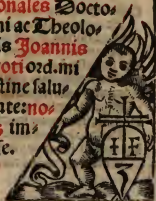 onales Docto⸗
mi ac Theolo⸗
is Joannis
oti ord. mi
tine salu⸗
nte: no⸗
im⸗
se.